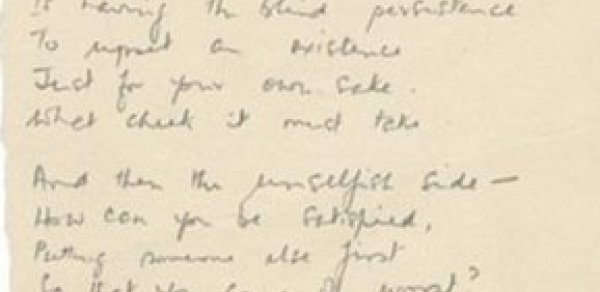 Is having the blind persistence
To upset an existence
Just for your own sake.
What cheek it must take.
And then the unselfish side —
How can you be satisfied,
Putting someone else first
So that you come off worst?